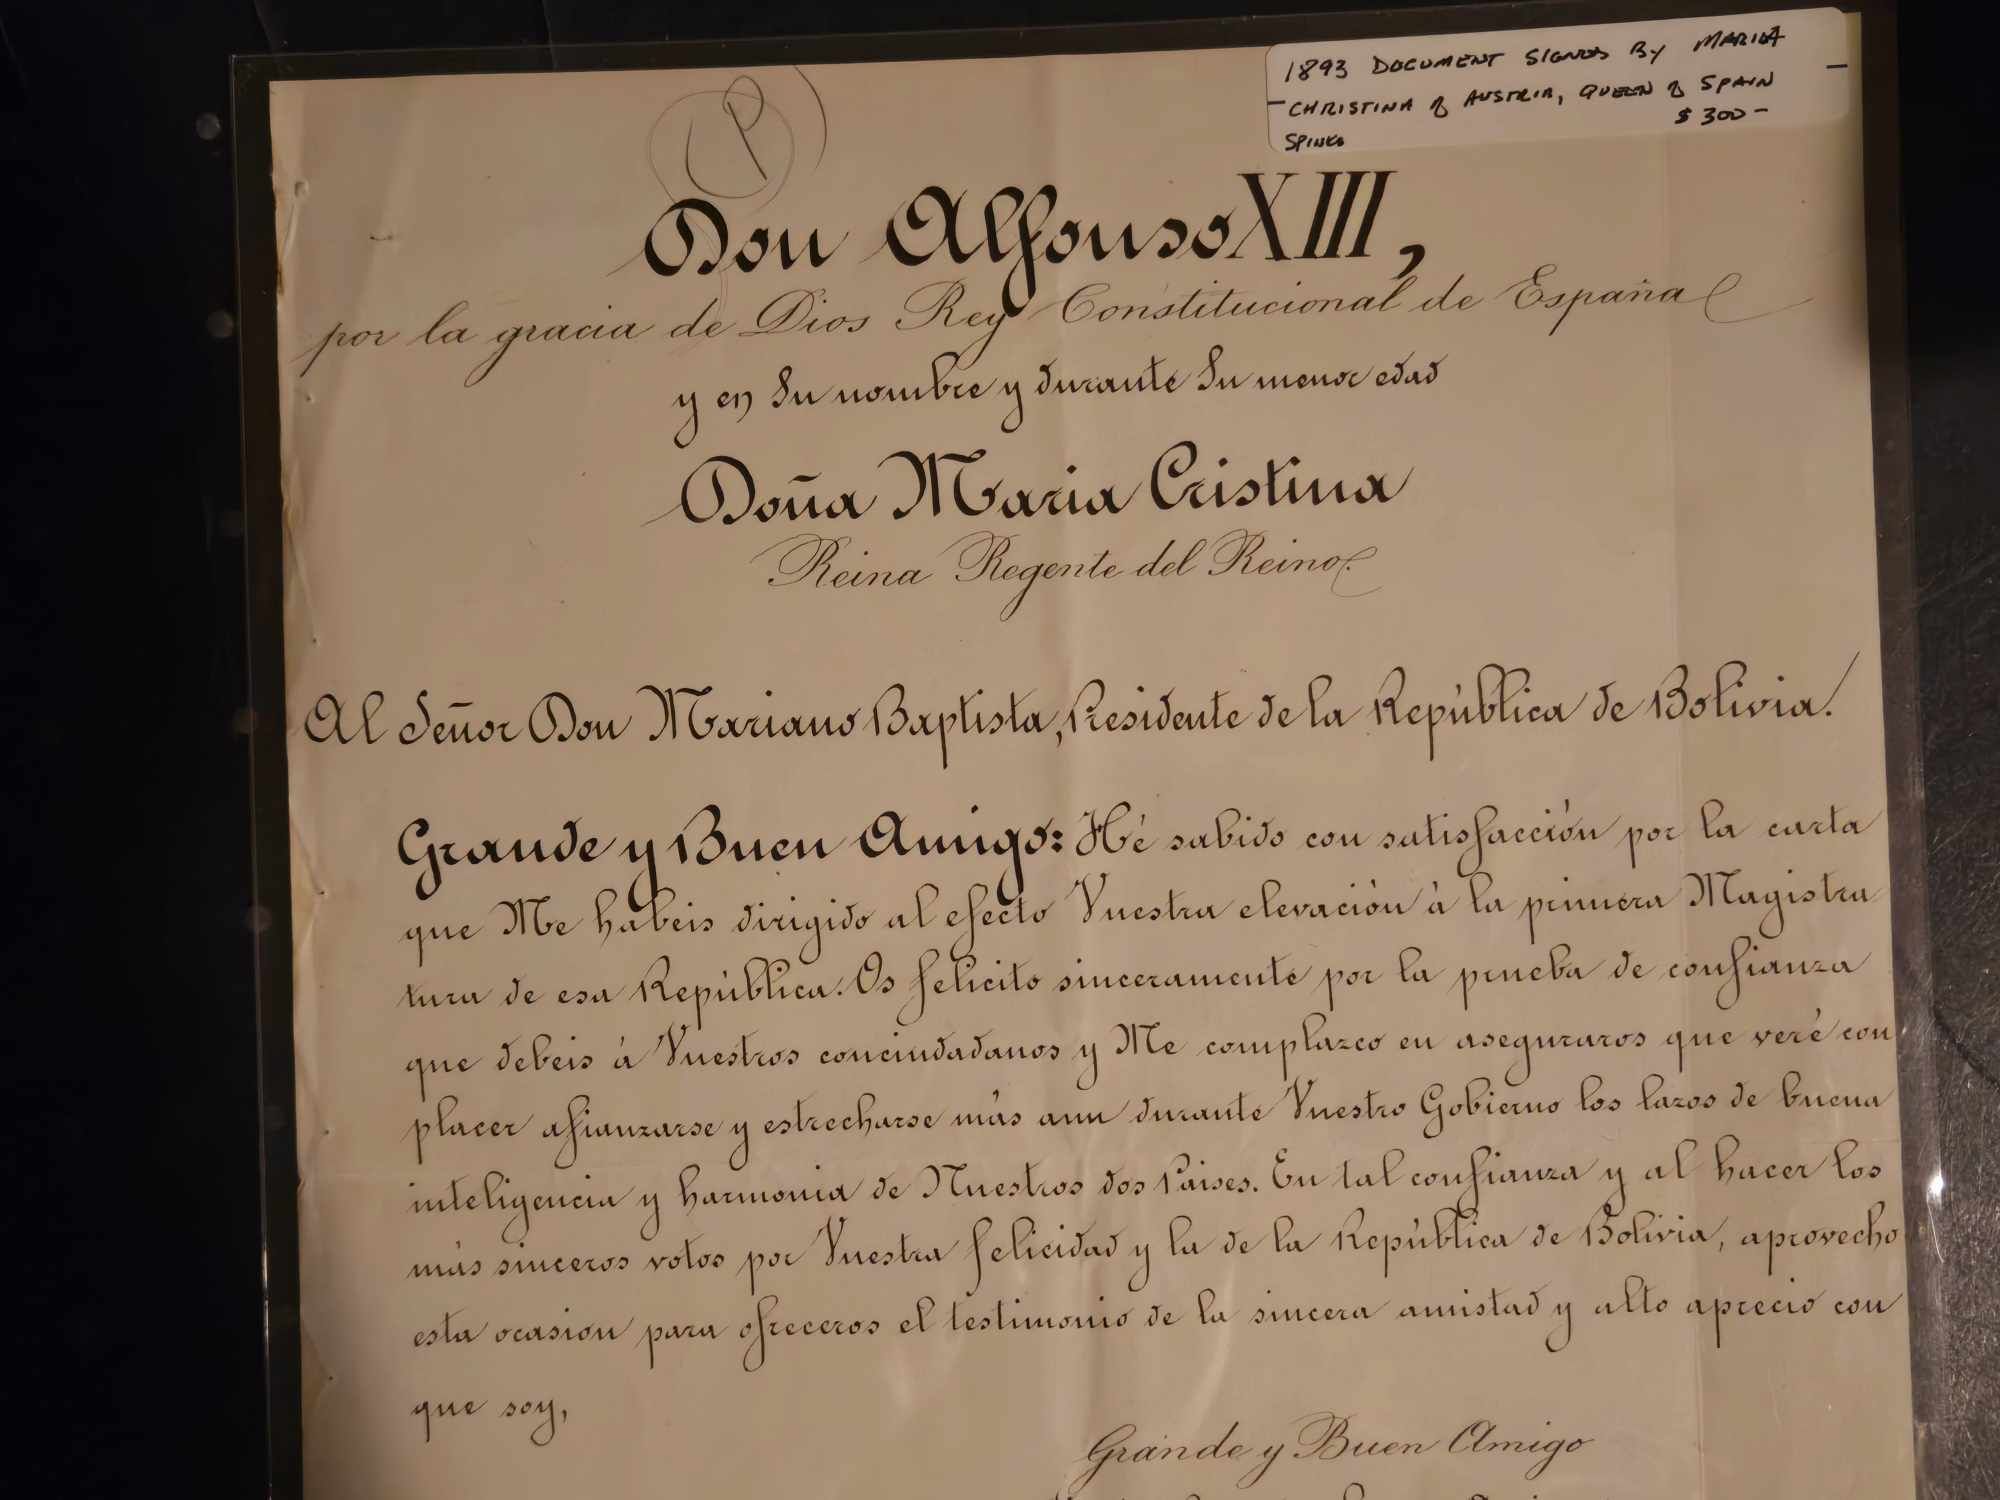 1893 DOCUMENT SIGNED BY MARIA
CHRISTINA of AUSTRIA, QUEEN of SPAIN
$300-
SPINKS
P
Don Alfonso XIII,
por la gracia de Dios Rey Constitucional de España
y en Su nombre y durante Su menor edad
Doña Maria Cristina
Reina Regente del Reino.
Al Señor Don Mariano Baptista, Presidente de la República de Bolivia.
Grande y Buen Amigo: Hé sabido con satisfacción por la carta
que Me habeis dirigido al efecto Vuestra elevación à la primera Magistra
tura de esa República. Os felicito sinceramente por la prueba de confianza
que debeis à Vuestros conciudadanos y Me complazco en aseguraros que veré con
placer afianzarse y estrecharse más aun durante Vuestro Gobierno los lazos de buena
inteligencia y harmonia de Nuestros dos Paises. En tal confianza y al hacer los
más sinceros votos por Vuestra felicidad y la de la República de Bolivia, aprovecho
esta ocasion para ofreceros el testimonio de la sincera amistad y alto aprecio con
que soy,
Grande y Buen Amigo